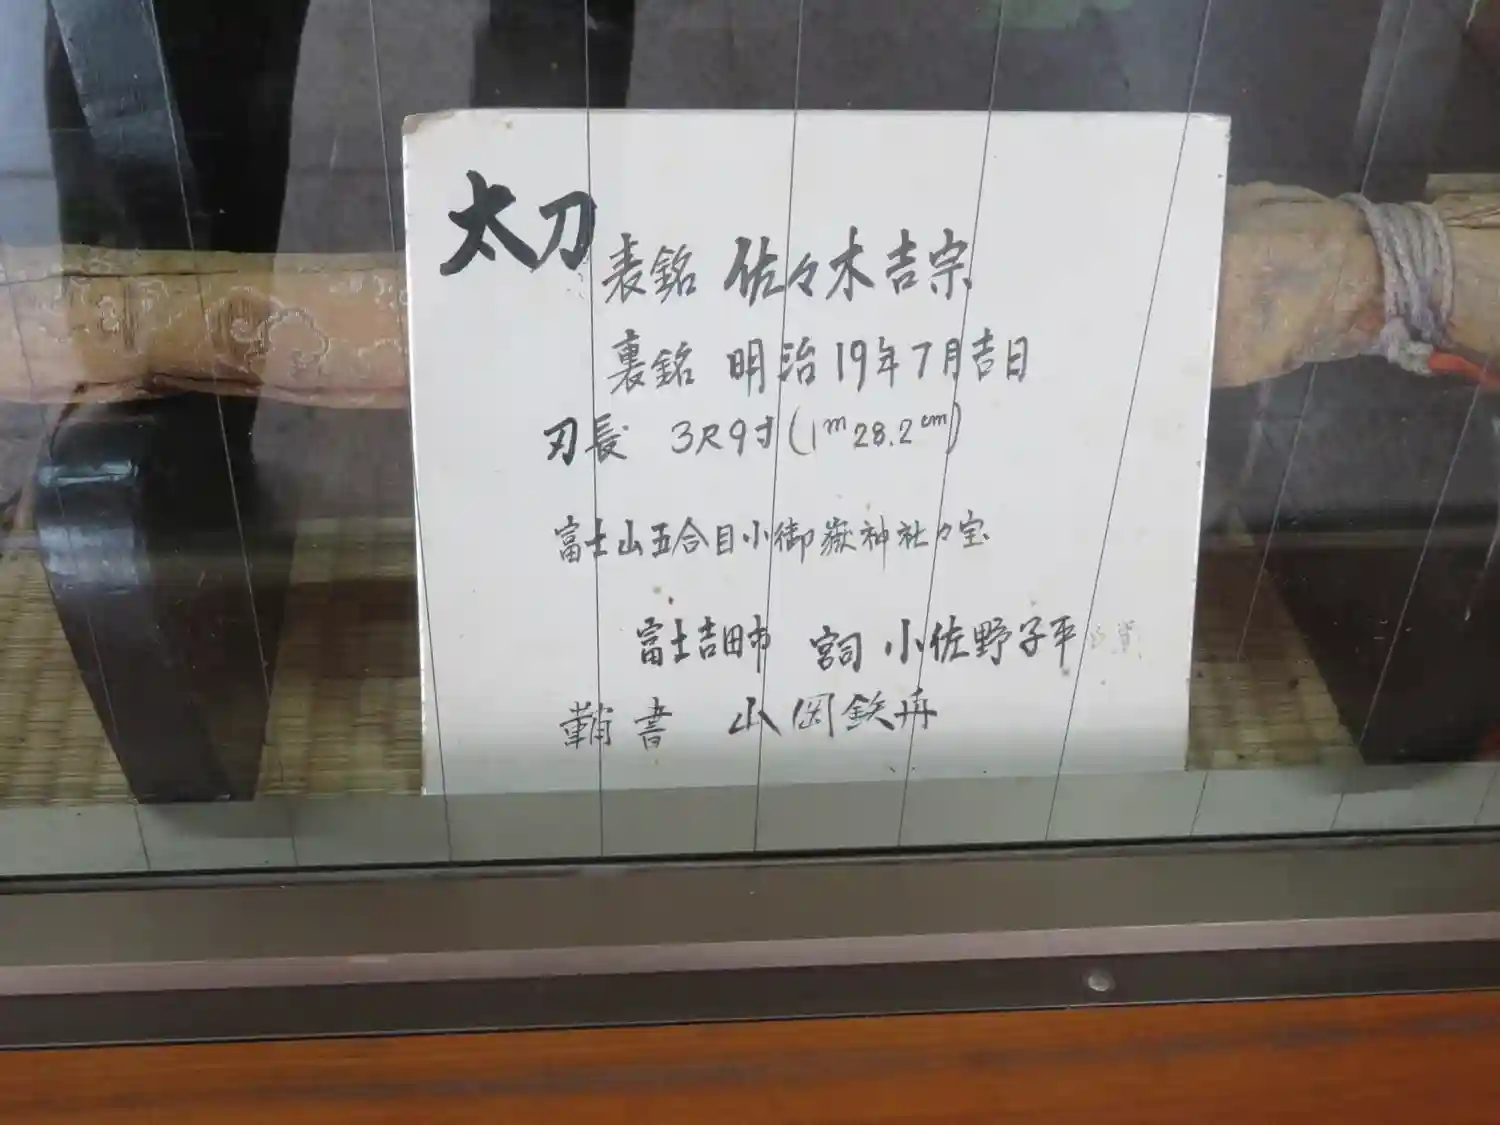 太刀
表銘 佐々木吉宗
裏銘 明治19年7月吉日
刃長 3尺9寸(1m28.2cm)
富士山五合目小御嶽神社々宝
富士吉田市 宮司 小佐野子平
鞘書 山岡鉄舟